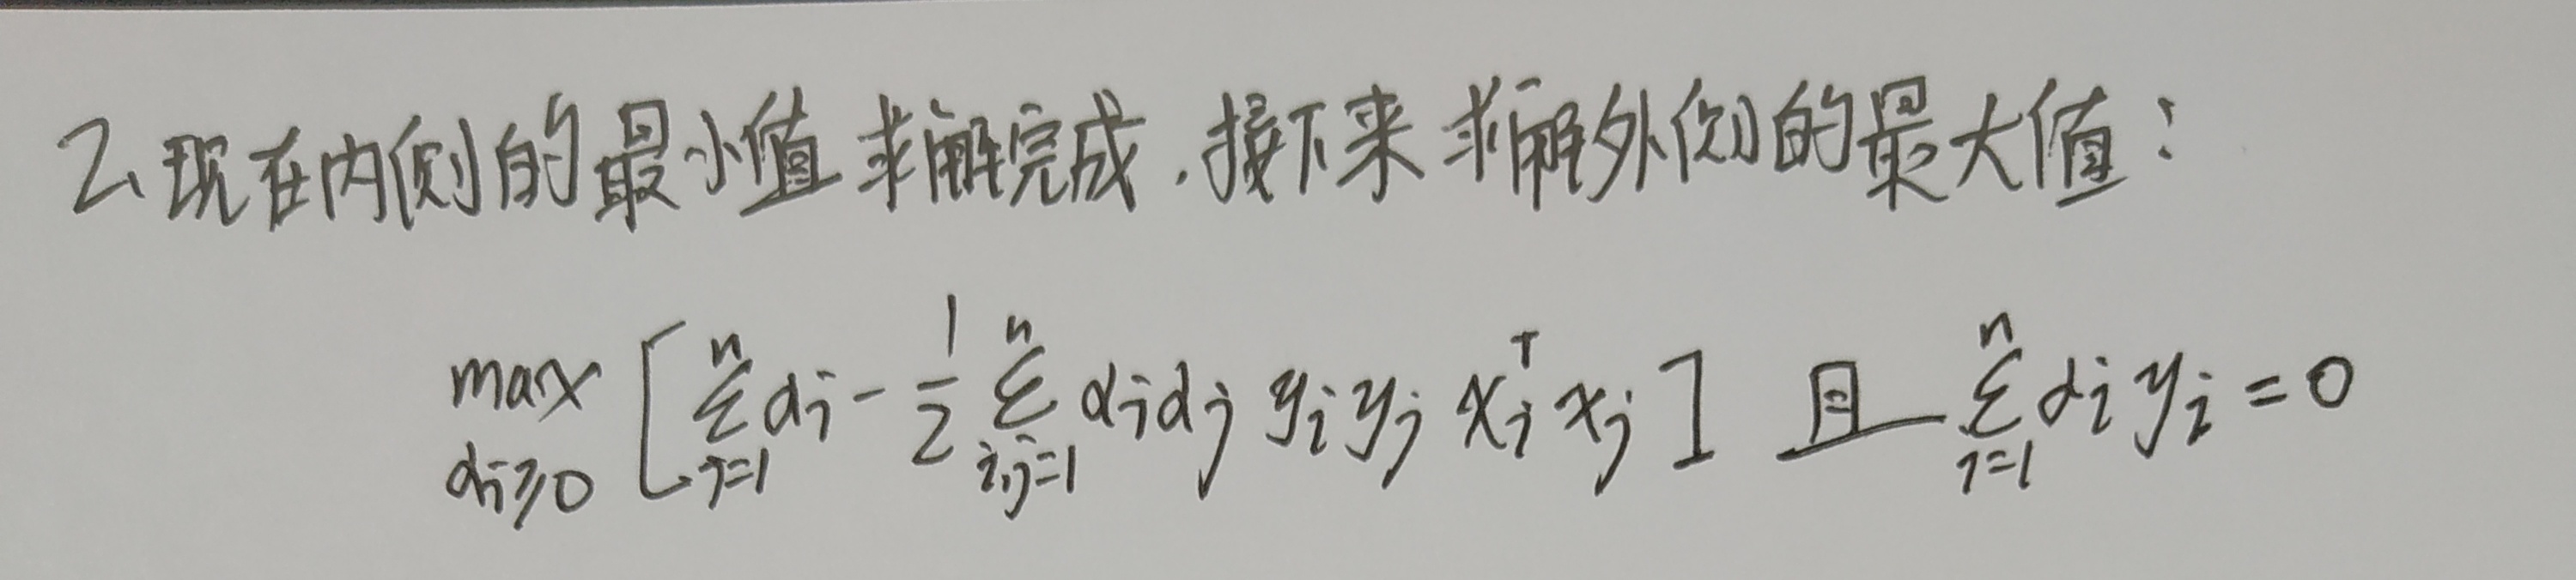 2、现在内侧的最小值求解完成,接下来求解外侧的最大值:
max_{αi≥0} [ ∑_{i=1}^{n} αi - 1/2 ∑_{i,j=1}^{n} αi αj yi yj xi^T xj ] 且 ∑_{i=1}^{n} αi yi = 0